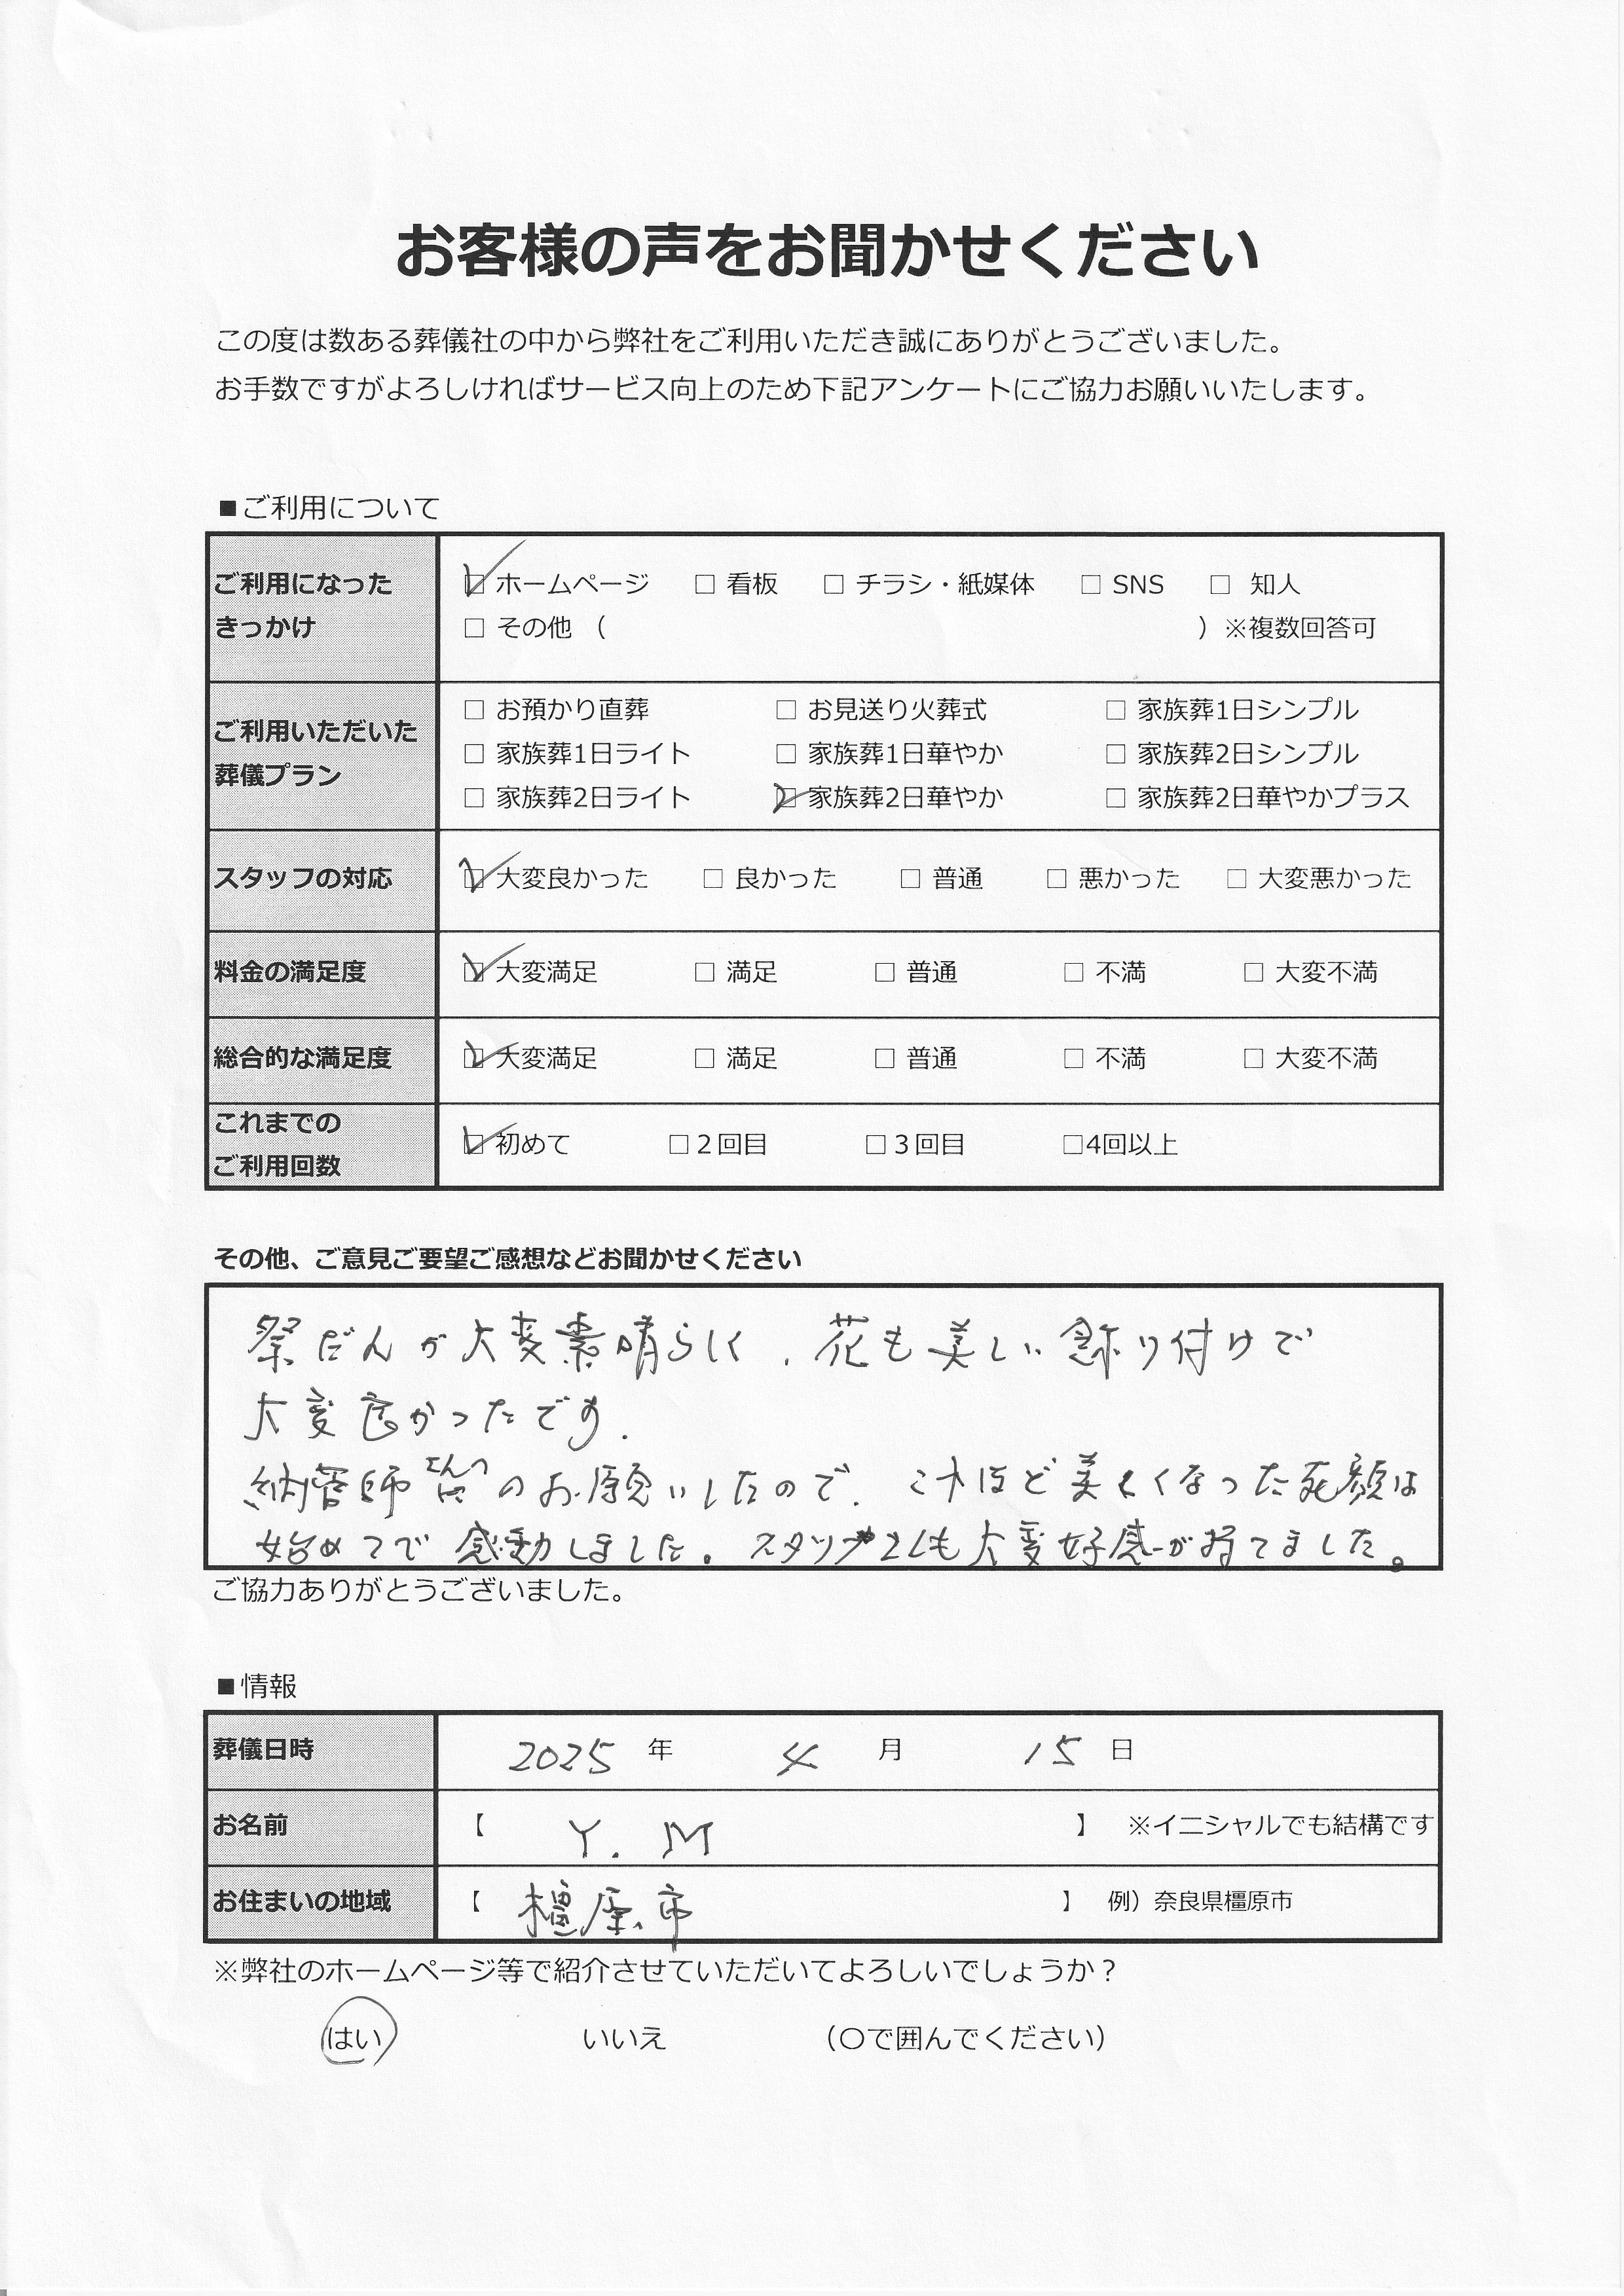 お客様の声をお聞かせください
この度は数ある葬儀社の中から弊社をご利用いただき誠にありがとうございました。
お手数ですがよろしければサービス向上のため下記アンケートにご協力お願いいたします。
■ご利用について
ご利用になった
きっかけ
☑ ホームページ □ 看板 □ チラシ・紙媒体 □ SNS □ 知人
□ その他 （ ）※複数回答可
ご利用いただいた
葬儀プラン
□ お預かり直葬 □ お見送り火葬式 □ 家族葬1日シンプル
□ 家族葬1日ライト □ 家族葬1日華やか □ 家族葬2日シンプル
□ 家族葬2日ライト ☑ 家族葬2日華やか □ 家族葬2日華やかプラス
スタッフの対応
☑ 大変良かった □ 良かった □ 普通 □ 悪かった □ 大変悪かった
料金の満足度
☑ 大変満足 □ 満足 □ 普通 □ 不満 □ 大変不満
総合的な満足度
☑ 大変満足 □ 満足 □ 普通 □ 不満 □ 大変不満
これまでの
ご利用回数
☑ 初めて □２回目 □３回目 □4回以上
その他、ご意見ご要望ご感想などお聞かせください
祭だんが大変素晴らしく、花も美しい飾り付けで
大変良かったです。
納管師 のお願いしたので、これほど美しくなった死顔は
始めてで感動しました。スタッフ も大変好感が持てました。
ご協力ありがとうございました。
■情報
葬儀日時
2025 年 4 月 15 日
お名前
【 Y. M 】 ※イニシャルでも結構です
お住まいの地域
【 橿原市 】 例）奈良県橿原市
※弊社のホームページ等で紹介させていただいてよろしいでしょうか？
はい いいえ （〇で囲んでください）